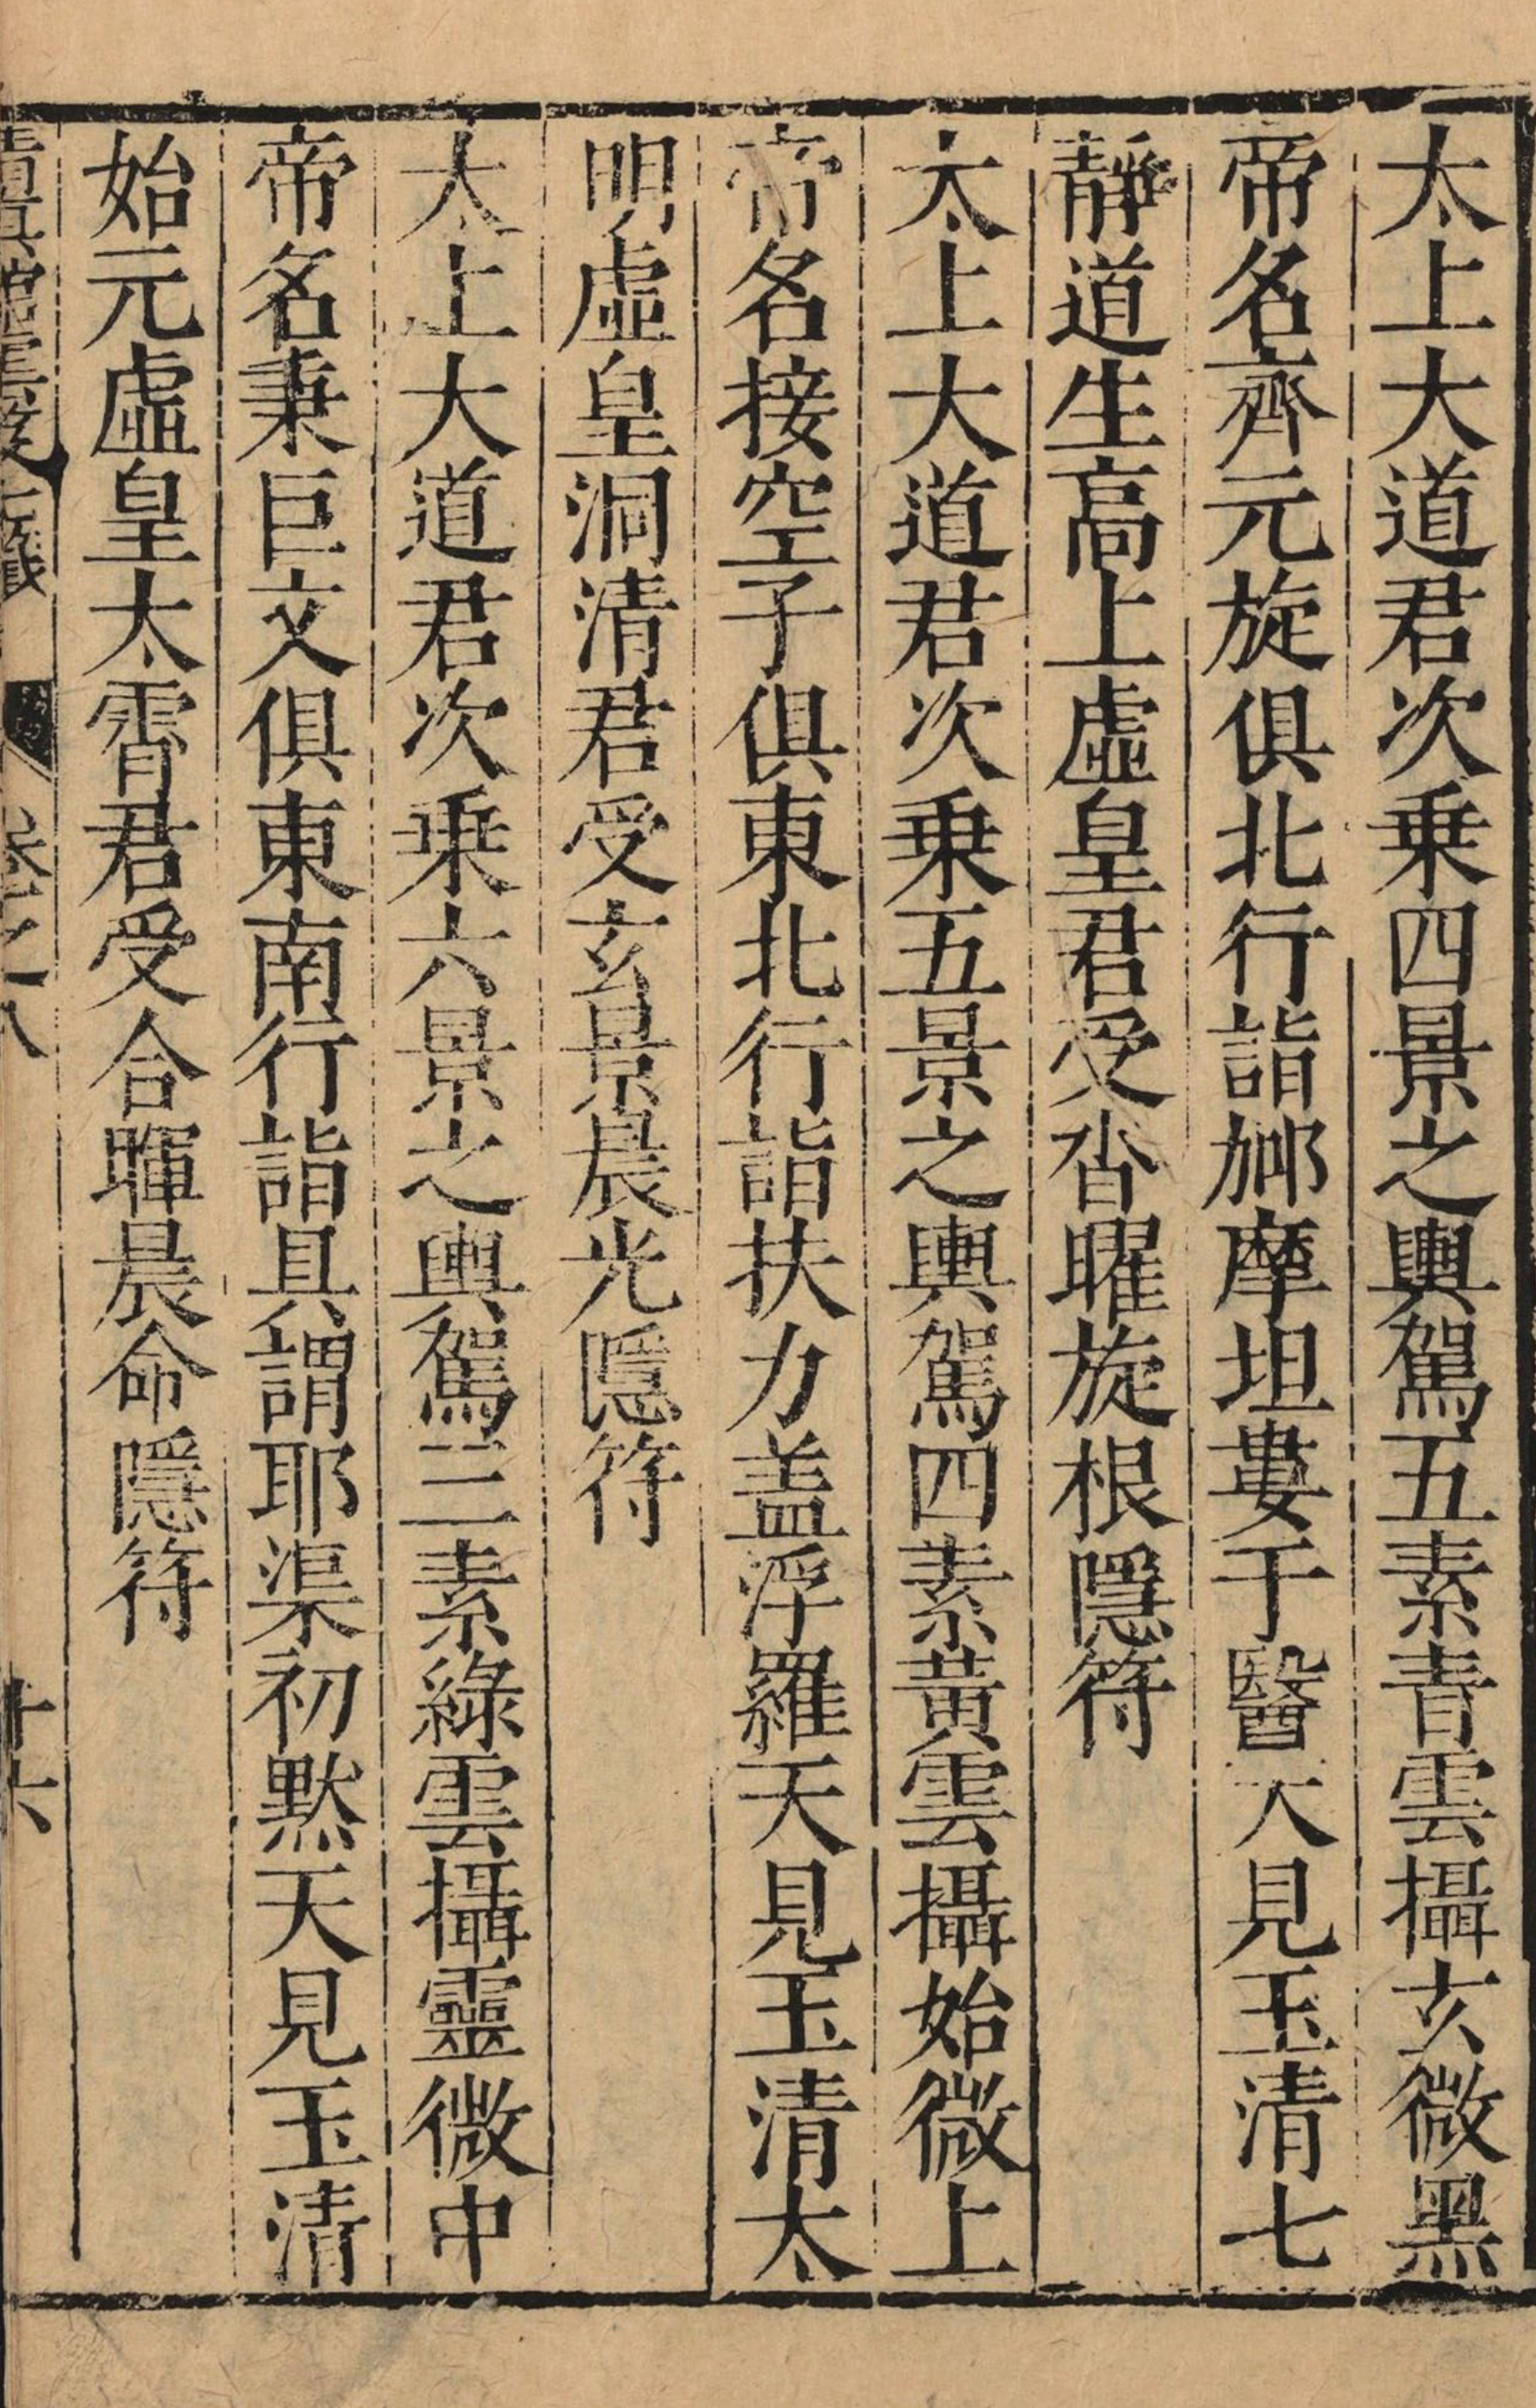 太上大道君次乗四景之輿駕五素青雲攝玄微黑
帝名齊元旋俱北行詣㧨摩坦婁于醫天見玉清七
靜道生高上虛皇君受沓曜旋根隱符
太上大道君次乗五景之輿駕四素黃雲攝始微上
帝名接空子俱東北行詣扶力盖浮羅天見玉清太
明虛皇洞清君受玄景晨光隱符
太上大道君次乗六景之輿駕三素綠雲攝靈微中
帝名秉巨文俱東南行詣具謂耶渠初默天見玉清
始元虛皇太霄君受合暉晨命隱符
清真館雲笈七籤 卷之八 十六